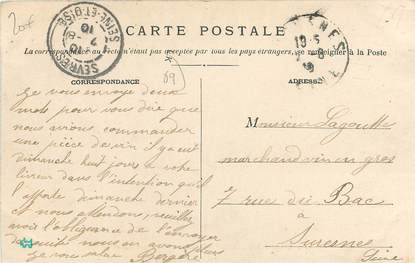 20f
CARTE POSTALE
La correspondance au recto n'étant pas acceptée par tous les pays étrangers, se renseigner à la Poste
SÈVRES
SEINE-ET-OISE
89
CORRESPONDANCE
ADRESSE
Je vous envoye deux
mots pour vous dire que
nous avions commander
une pièce de vin il y a eut
dimanche huit jours a votre
livreur dans l'intention qu'il
l'apporte dimanche dernier
et nous attendons, veuillez
avoir l'obligeance de l'envoyer
de suite nous en avons plus
Je vous salue
Monsieur Lagoutte
marchand vin en gros
7 rue du Bac
à
Suresnes
Seine